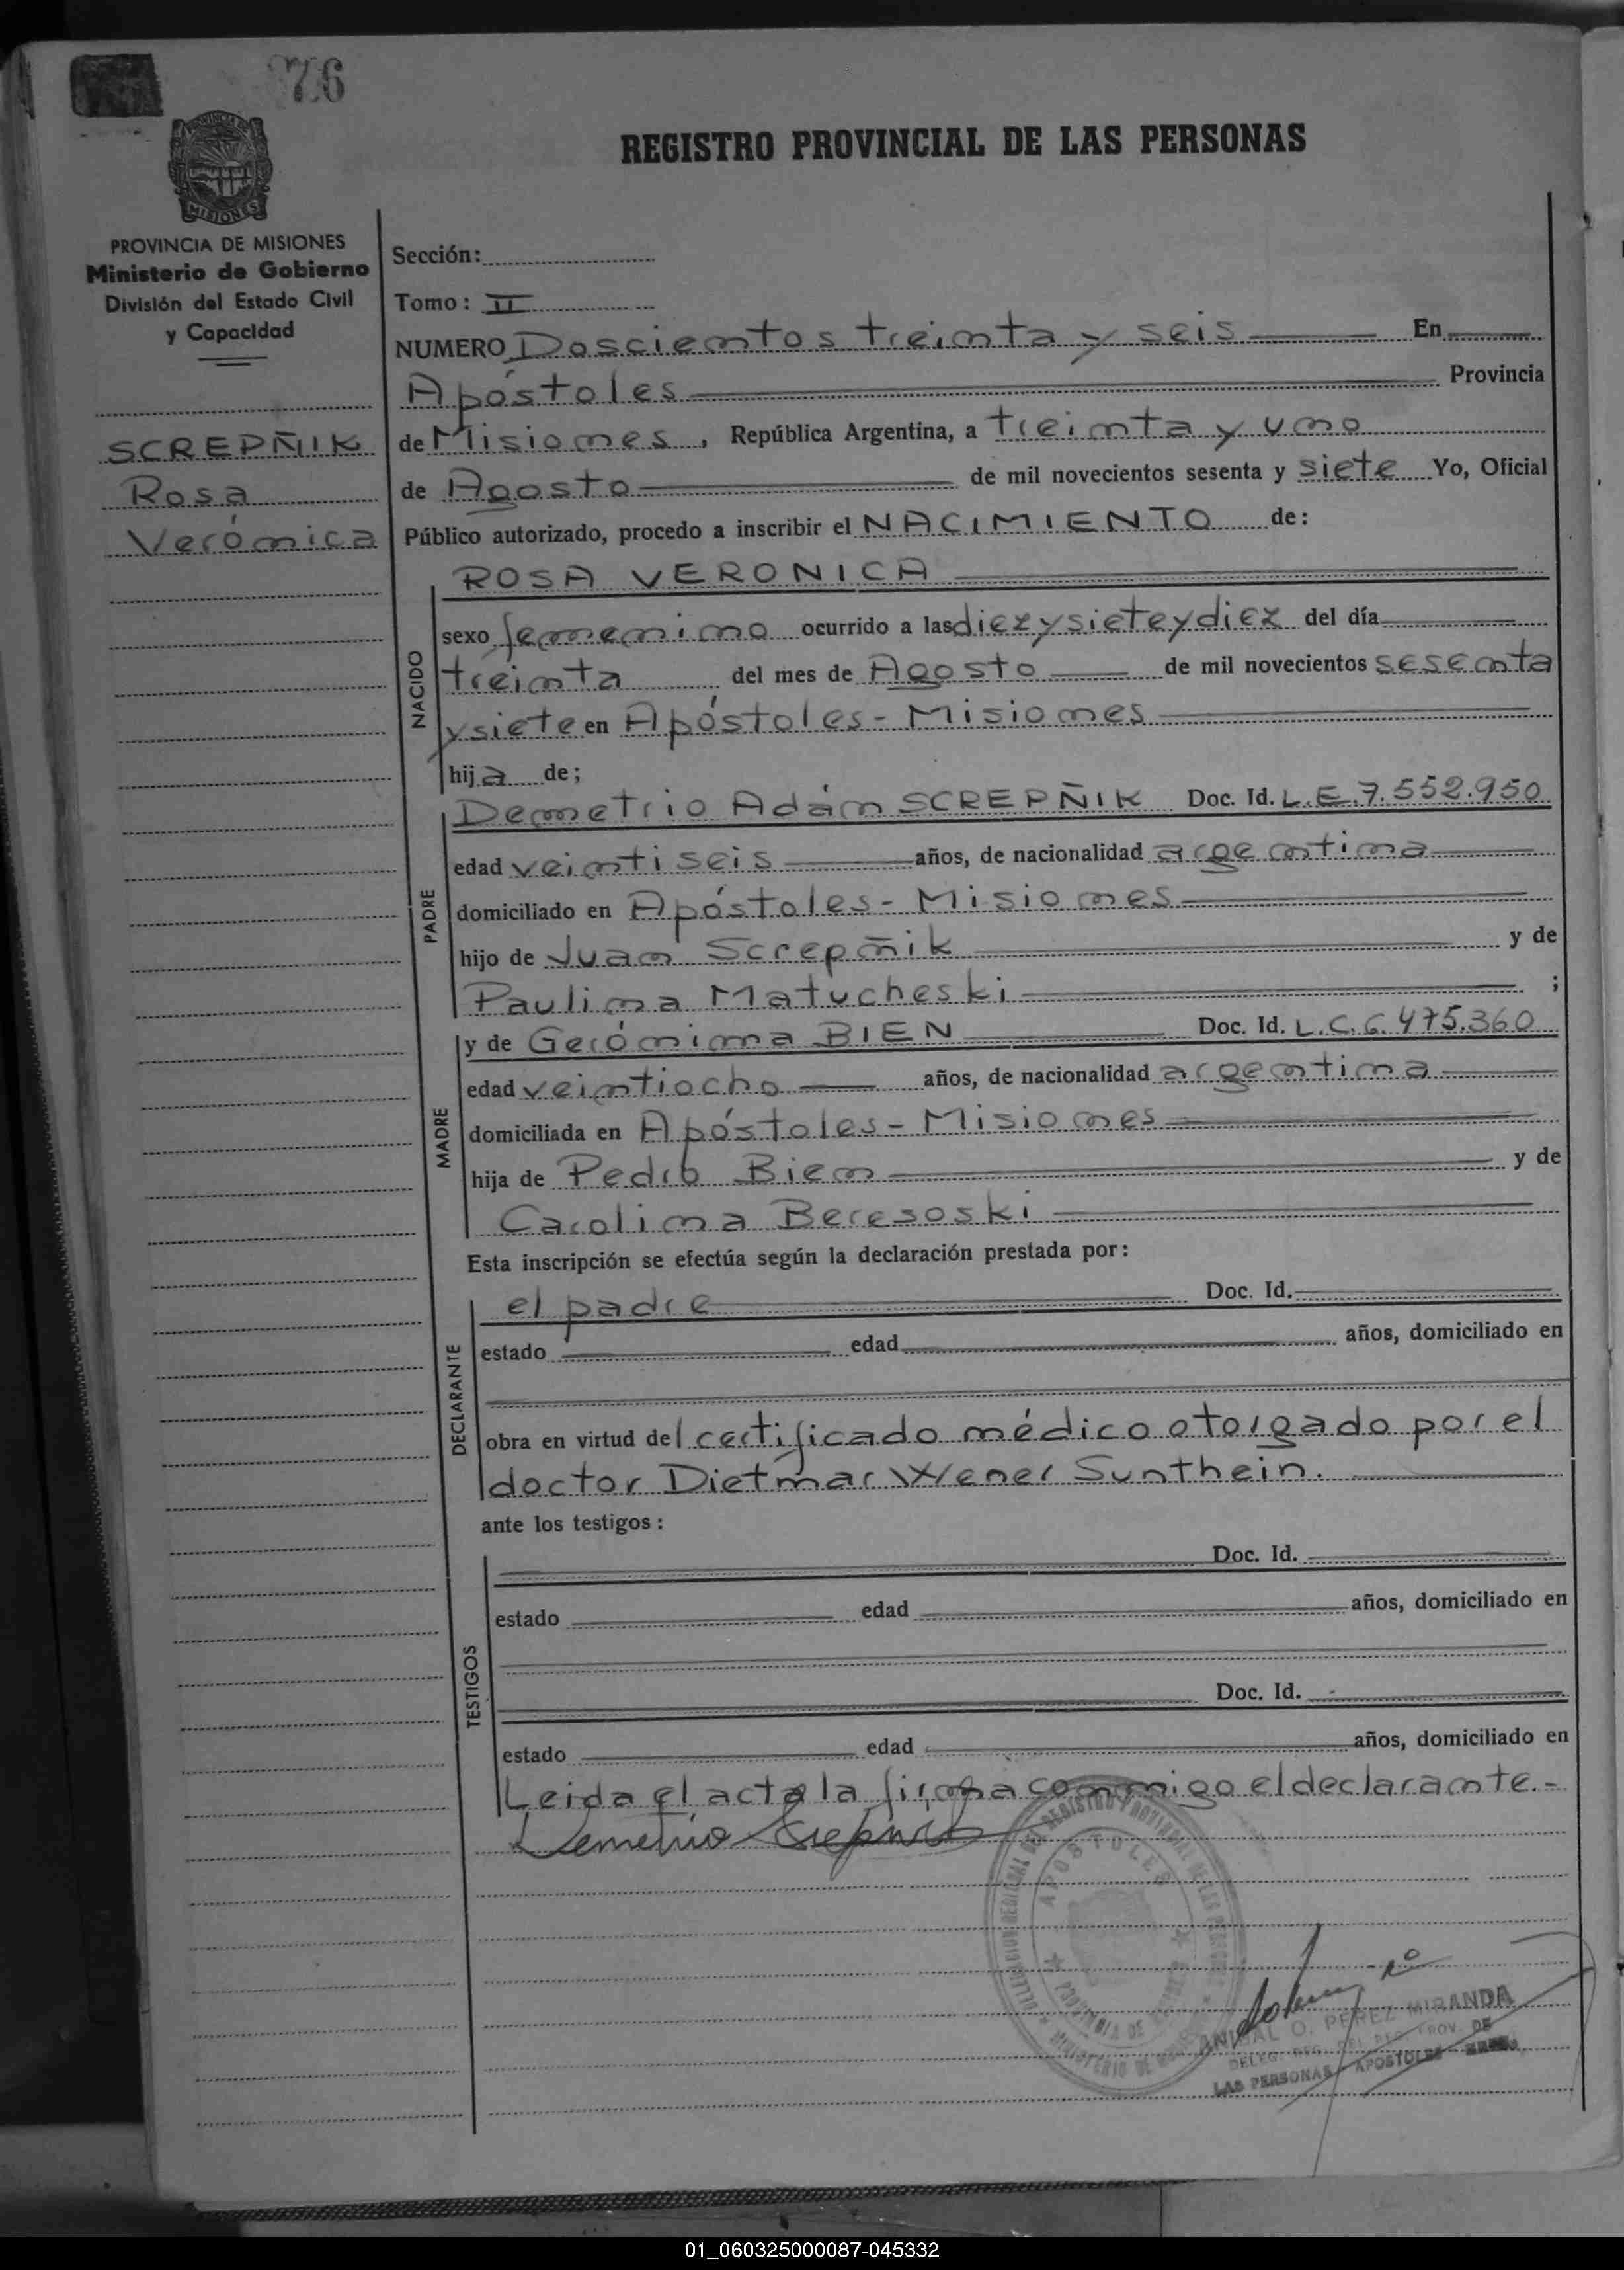 76
REGISTRO PROVINCIAL DE LAS PERSONAS
MISIONES
PROVINCIA DE MISIONES
Ministerio de Gobierno
División del Estado Civil
y Capacidad
SCREPÑIK
Rosa
Verónica
Sección:
Tomo: II
NUMERO Doscientos treinta y seis En
Apóstoles Provincia
de Misiones, República Argentina, a treinta y uno
de Agosto de mil novecientos sesenta y siete Yo, Oficial
Público autorizado, procedo a inscribir el NACIMIENTO de:
NACIDO
ROSA VERONICA
sexo femenino ocurrido a las diez y siete y diez del día
treinta del mes de Agosto de mil novecientos sesenta
y siete en Apóstoles - Misiones
hija de;
PADRE
Demetrio Adán SCREPÑIK Doc. Id. L.E. 7.552.950
edad veinti seis años, de nacionalidad argentina
domiciliado en Apóstoles - Misiones
hijo de Juan Screpñik y de
Paulina Matucheski ;
MADRE
y de Gerónima BIEN Doc. Id. L.C. 6.475.360
edad veintiocho años, de nacionalidad argentina
domiciliada en Apóstoles - Misiones
hija de Pedro Bien y de
Carolina Beresoski
Esta inscripción se efectúa según la declaración prestada por:
DECLARANTE
el padre Doc. Id.
estado edad años, domiciliado en
obra en virtud del certificado médico otorgado por el
doctor Dietmar Wener Sunthein.
ante los testigos:
TESTIGOS
Doc. Id.
estado edad años, domiciliado en
Doc. Id.
estado edad años, domiciliado en
Leida el acta la firma conmigo el declarante.-
Demetrio Screpnik
APOSTOLES
ANIBAL O. PEREZ MIRANDA
DELEG. REG. DEL REG. PROV. DE
LAS PERSONAS APOSTOLES
01_060325000087-045332